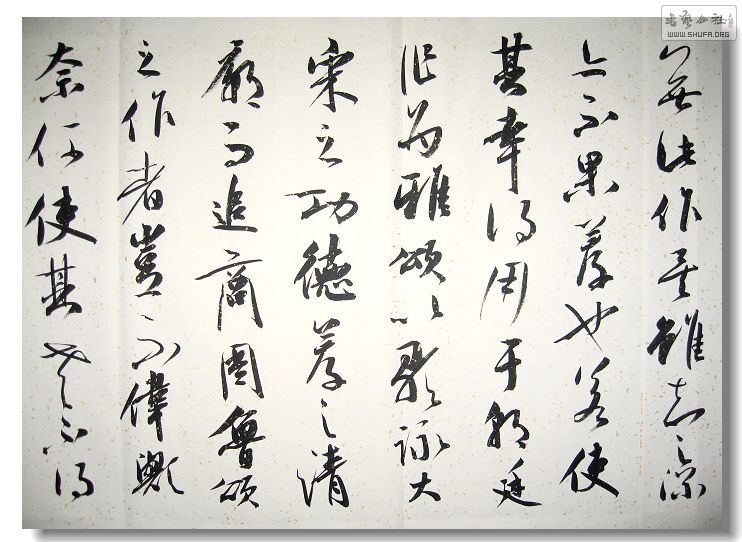 书艺公社
WWW.SHUFA.ORG
無此作矣雖知之深
亦不果薦也若使
其幸得用于朝廷
作为雅頌以歌詠大
宋之功德薦之清
廟而追商周魯頌
之作者豈不偉歟
奈何使其老不得